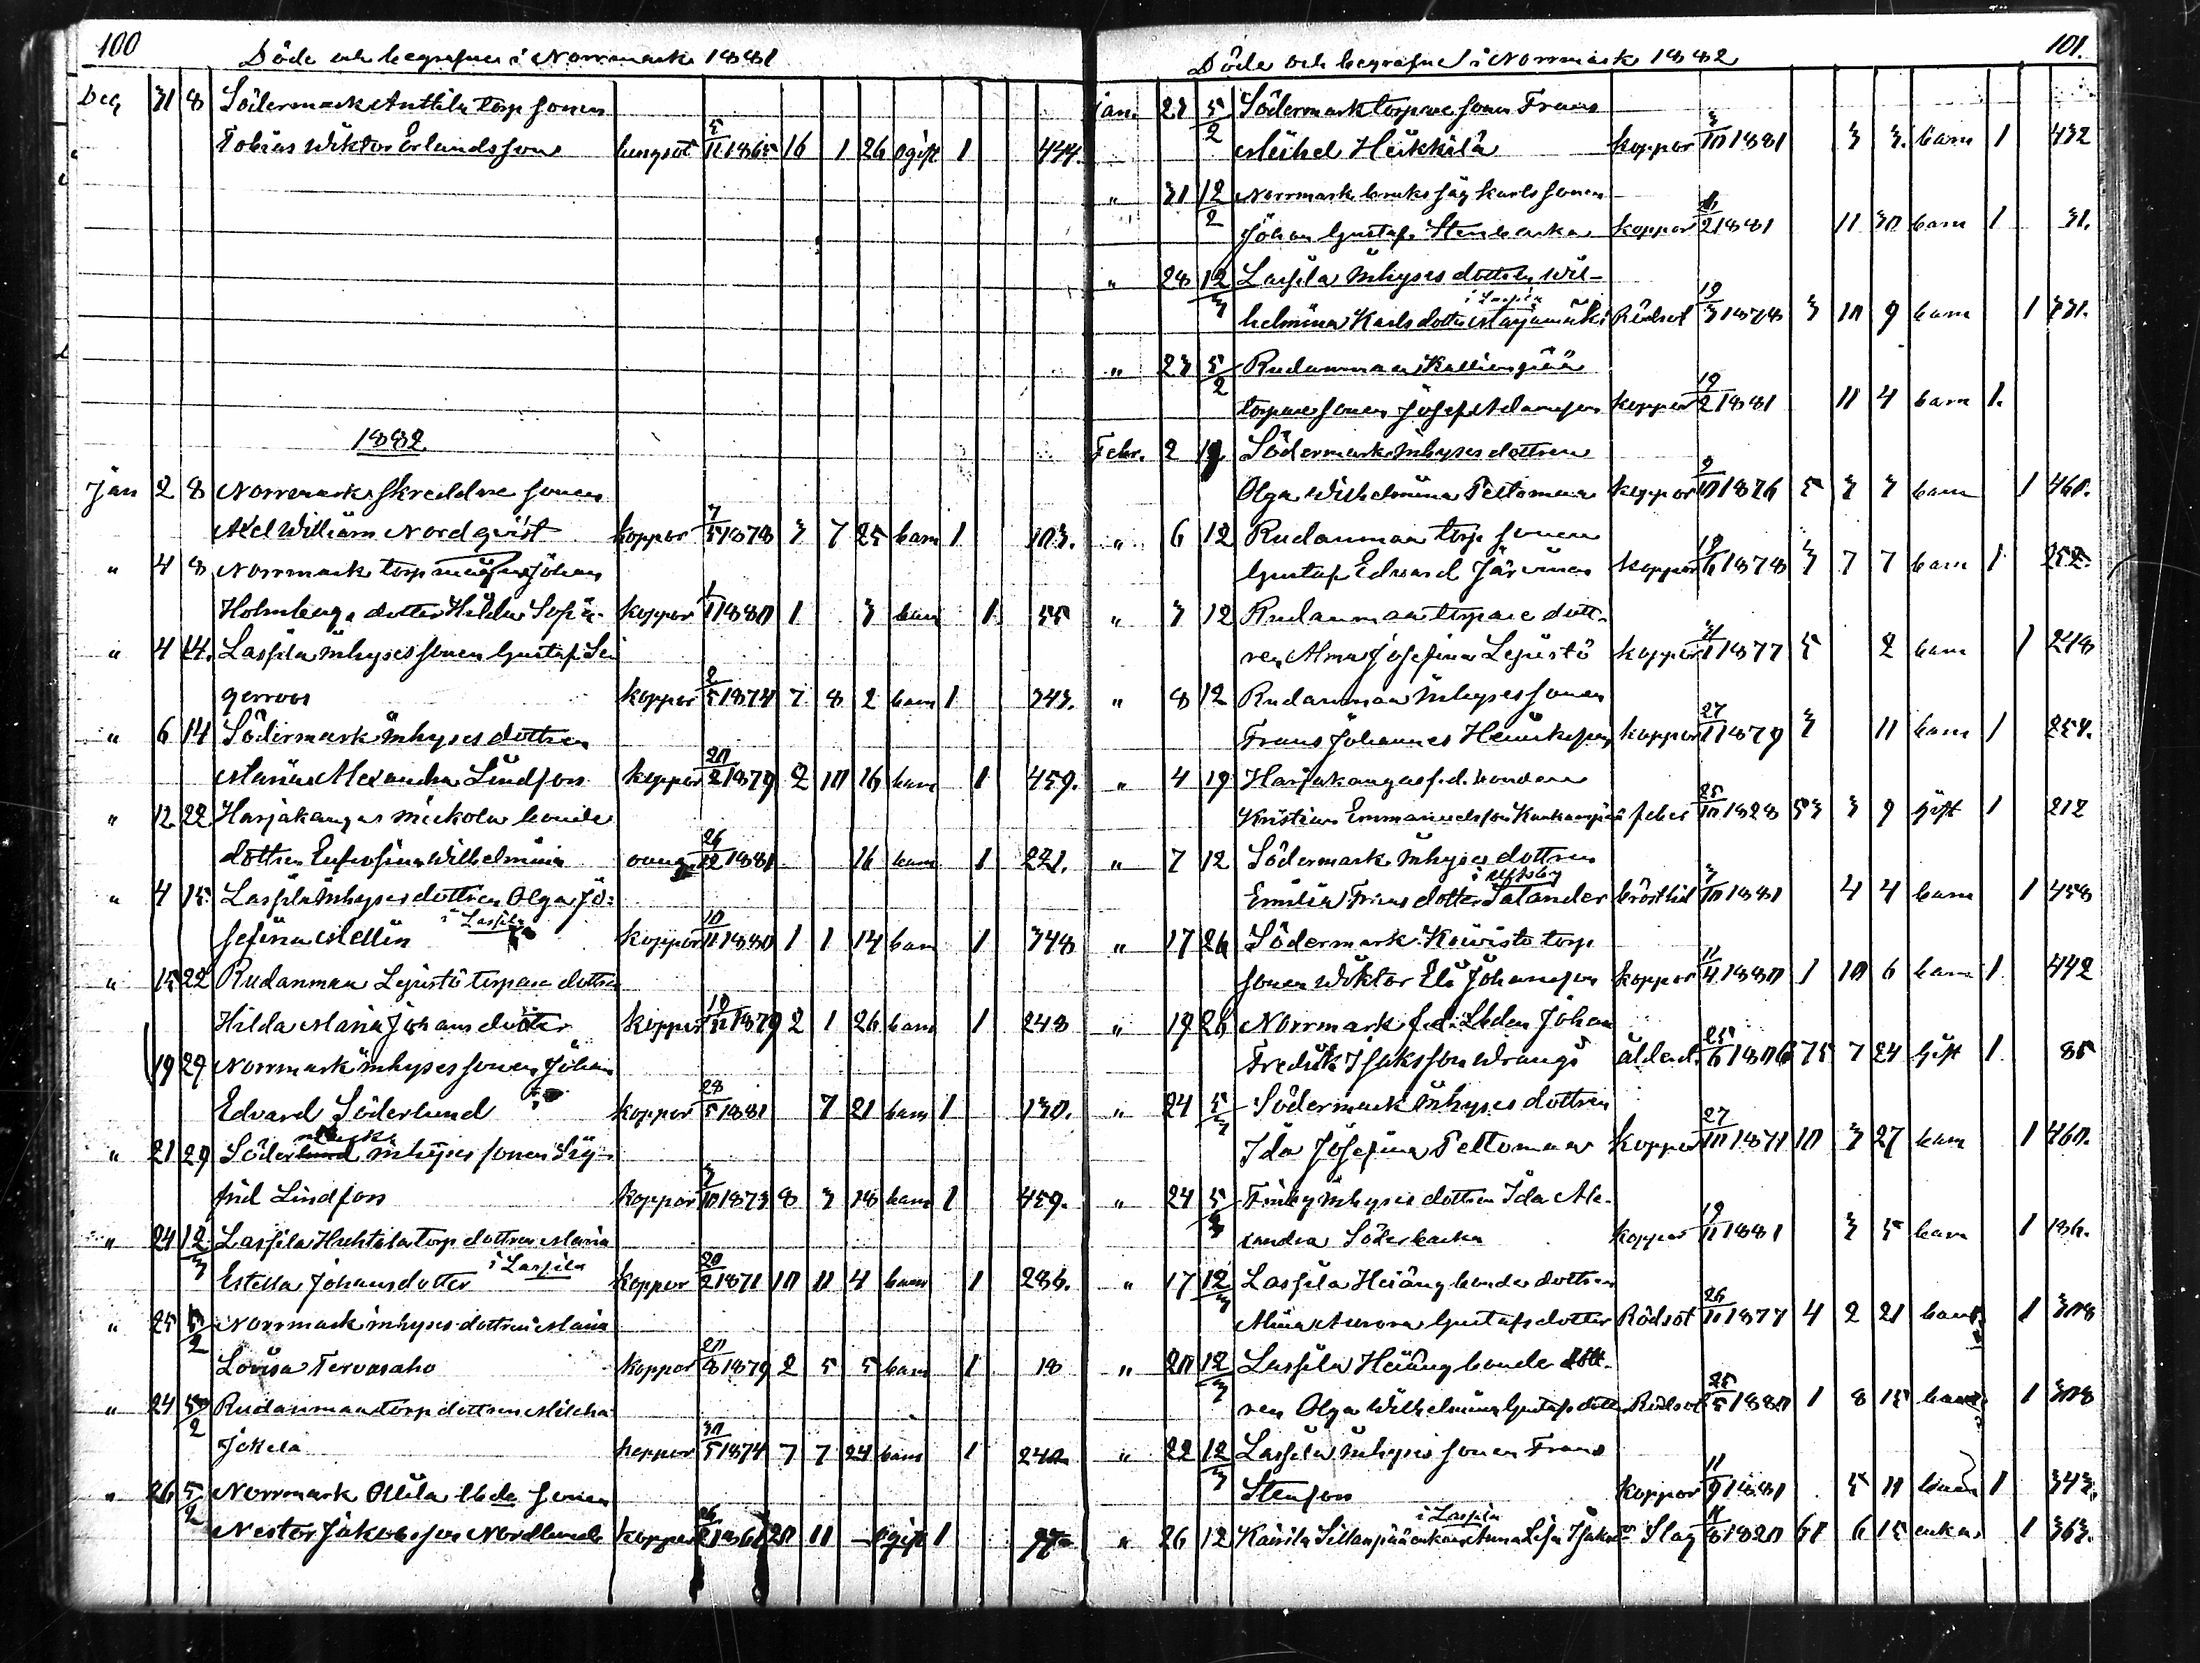 100
Döde och begrafne i Norrmark 1881
Dec 31 8 Södermark Anttila torp sonen
Tobias Wiktor Erlandsson lungsot 5/11 1865 16 1 26 ogift 1 444.
1882
Jan 2 8 Norrmark skreddare sonen
Axel William Nordqvist koppor 7/5 1878 3 7 25 barn 1 103.
" 4 8 Norrmark torp Johan
Holmbergs dotter Hilda Sofia koppor 1/1 1880 1 3 barn 1 55
" 4 14. Lassila inhyses sonen Gustaf Se
gerroos koppor 2/5 1874 7 8 2 barn 1 343.
" 6 14 Södermark inhyses dottren
Maria Alexandra Lindfors koppor 20/2 1879 2 10 16 barn 1 459.
" 12 22 Harjakangas Mickola bonde
dottren Eufrosina Wilhelmina 26/12 1881 16 barn 1 221.
" 4 15 Lassila inhyses dottren Olga Jo-
sefina Mellin i Lassila koppor 10/11 1880 1 1 14 barn 1 348
" 15 22 Rudanmaa Lepistö torpare dottren
Hilda Maria Johansdotter koppor 19/11 1879 2 1 26 barn 1 248
19 29 Norrmark inhyses sonen Johan
Edvard Söderlund koppor 28/5 1881 7 21 barn 1 130.
" 21 29 Södermark inhyses sonen Sig-
frid Lindfors koppor 3/10 1873 8 3 18 barn 1 459.
" 24 12/3 Lassila Huhtala torp dottren Maria
Estella Johansdotter i Lassila koppor 20/2 1871 10 11 4 barn 1 286.
" 25 5/2 Norrmark inhyses dottren Maria
Lovisa Tervasaho koppor 20/8 1879 2 5 5 barn 1 18
" 24 5/2 Rudanmaa torp dottren Milcha
Jokela koppor 30/5 1874 7 7 24 barn 1 240
" 26 5/2 Norrmark Ollila sonen
Nestor Jakobsson Nordlund koppor 26/2 1861 20 11 — ogift 1
101.
Döde och begrafne i Norrmark 1882
Jan. 23 5/2 Södermark torpare sonen Frans
Mihel Heikkilä koppor 3/10 1881 3 3. barn 1 432
" 31 12/2 Norrmark bruks såg karls sonen
Johan Gustaf Stenbacka koppor 2 1881 11 30 barn 1 31.
" 28 12/3 Lassila inhyses dottren Wil-
helmina Karlsdotter Mayamäki i Lassila Rödsot 19/3 1878 3 10 9 barn 1 331.
" 23 5/2 Rudanmaa Kallionpää
torpare sonen Josef Adamsson koppor 19/2 1881 11 4 barn 1.
Febr. 2 19 Södermark inhyses dottren
Olga Wilhelmina Peltomaa koppor 9/10 1876 5 3 3 barn 1 460.
" 6 12 Rudanmaa torp sonen
Gustaf Edvard Järvinen koppor 19/6 1878 3 7 7 barn 1 252.
" 3 12 Rudanmaa torpare dott-
ren Alma Josefina Lepistö koppor 31/1 1877 5 2 barn 1 248
" 8 12 Rudanmaa inhyses sonen
Frans Johannes Heinriksson koppor 27/1 1879 3 11 barn 1 254.
" 4 19 Harjakangas f.d. bonden
Kristian Emmanuelsson Kankaanpää feber 25/10 1828 53 3 9 gift 1 212
" 7 12 Södermark inhyses dottren
Emilia Fransdotter Salander i Ulfsby 3/10 1881 4 4 barn 1 458
" 17 26 Södermark Koivisto torp
sonen Wiktor Eli Johansson koppor 11/4 1880 1 10 6 barn 1 442
" 19 26 Norrmark f.d. Johan
Fredrik Isaksson Wrang ålderd. 25/6 1806 75 7 24 gift 1 85
" 24 5/3 Södermark inhyses dottren
Ida Josefina Peltomaa koppor 27/10 1871 10 3 27 barn 1 460.
" 24 5/3 Finby inhyses dottren Ida Ale-
xandra Söderbacka koppor 19/11 1881 3 5 barn 1 186.
" 17 12/3 Lassila Heiäng bonde dottren
Mina Aurora Gustafsdotter Rödsot 26/11 1877 4 2 21 barn 1 308
" 20 12/3 Lassila Heiäng bonde dott-
ren Olga Wilhelmina Gustafsdotter Rödsot 25/5 1880 1 8 15 barn 1 308
" 22 12/3 Lassila inhyses sonen Frans
Stenfors koppor 11/9 1881 5 11 barn 1 343.
" 26 12 Kairila Sillanpää enkan Anna Lisa Isaks dr i Lassila Slag 11/8 1820 61 6 15 enka 1 363.